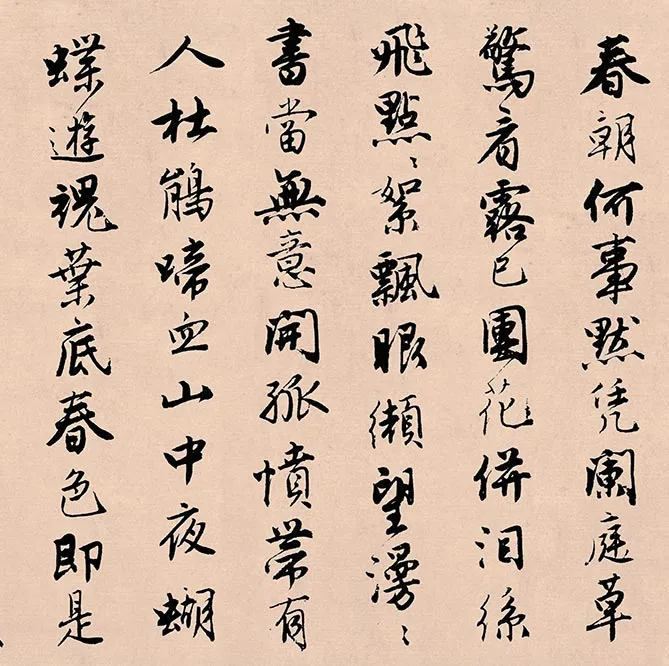 春朝何事默凭闌庭草
驚看露已團花併泪絲
飛點〻絮飄眼纈望漫〻
書當無意開孤憤帶有
人杜鵑啼血山中夜蝴
蝶遊魂葉底春色即是